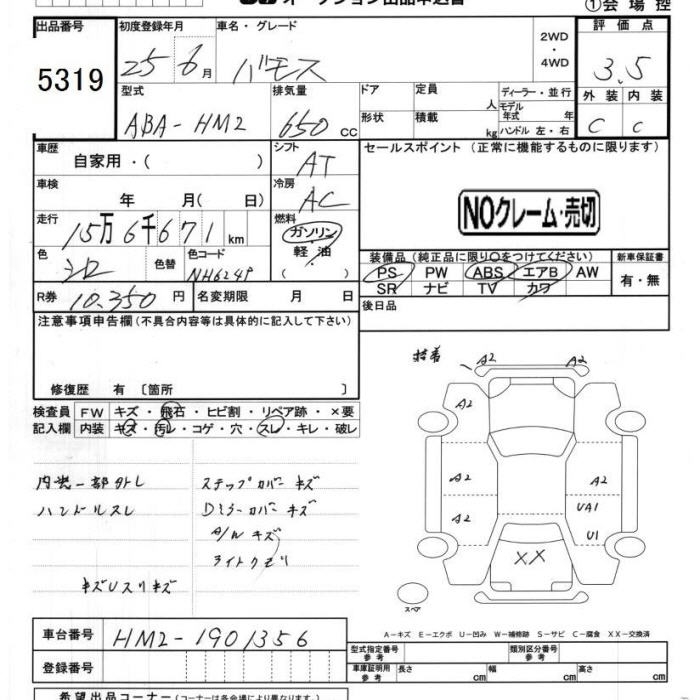 オークション出品申込書
①会場控
出品番号 初度登録年月 車名・グレード 2WD ・ 4WD 評価点
5319 25 6月 バモス 3.5
型式 排気量 ドア 定員 人 ディーラー・並行 外装 内装
ABA-HM2 650 CC 形状 積載 kg モデル年式 年 ハンドル 左・右 C C
車歴 自家用・( ) シフト AT セールスポイント (正常に機能するものに限ります)
車検 年 月( 日) 冷房 AC
NOクレーム・売切
走行 15万6千671km 燃料 ガソリン・軽油・( )
色 シロ 色替 色コード NH624P
装備品 (純正品に限り○をつけてください) 新車保証書
PS PW ABS エアB AW 有・無
SR ナビ TV カワ
R券 10,350円 名変期限 月 日 後日品
注意事項申告欄(不具合内容等は具体的に記入して下さい)
修復歴 有 〔箇所 〕
検査員 FW キズ・飛石・ヒビ割・リペア跡・×要
記入欄 内装 キズ・汚レ・コゲ・穴・スレ・キレ・破レ
A2 A2
A2
内装一部外レ ステップカバーキズ
ハンドルスレ Dミラーカバーキズ
A/Wキズ
ライトクモリ
キズUスリキズ
A2 A2
A2 UA1
U1
XX
スペア
A-キズ E-エクボ U-凹み W-補修跡 S-サビ C-腐食 XX-交換済
車台番号 HM2-1901356
型式指定番号 参考 類別区分番号 参考
登録番号 車庫証明用 参考 長さ cm 幅 cm 高さ cm
希望出品コーナー(コーナーは各会場により異なります。)